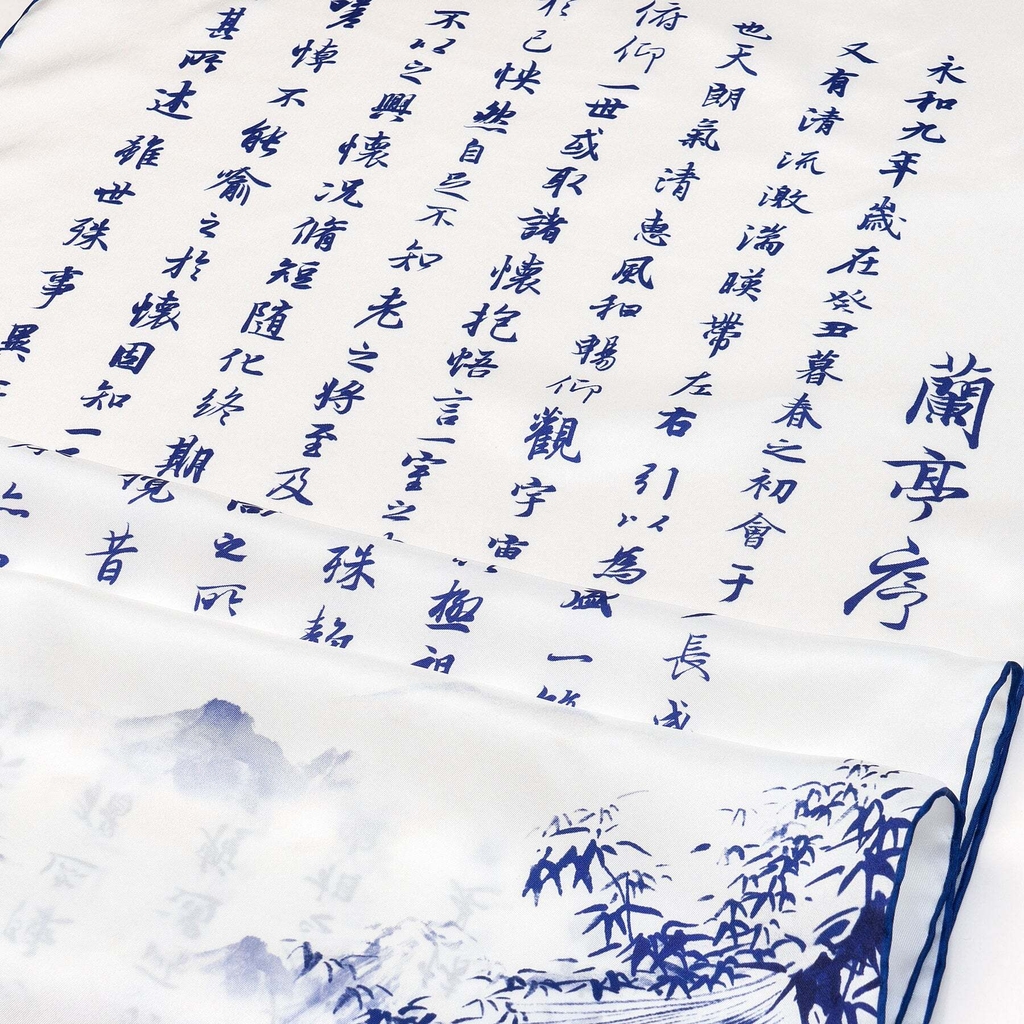 蘭亭序
永和九年歲在癸丑暮春之初會于
又有清流激湍暎帶左右引以為
也天朗氣清惠風和暢仰觀宇
俯仰一世或取諸懷抱悟言一室之
於己怏然自足不知老之將至及
不以之興懷況脩短隨化終期
嗟悼不能喻之於懷固知一
其所述雖世殊事異
長咸
一
極
殊
之所
昔